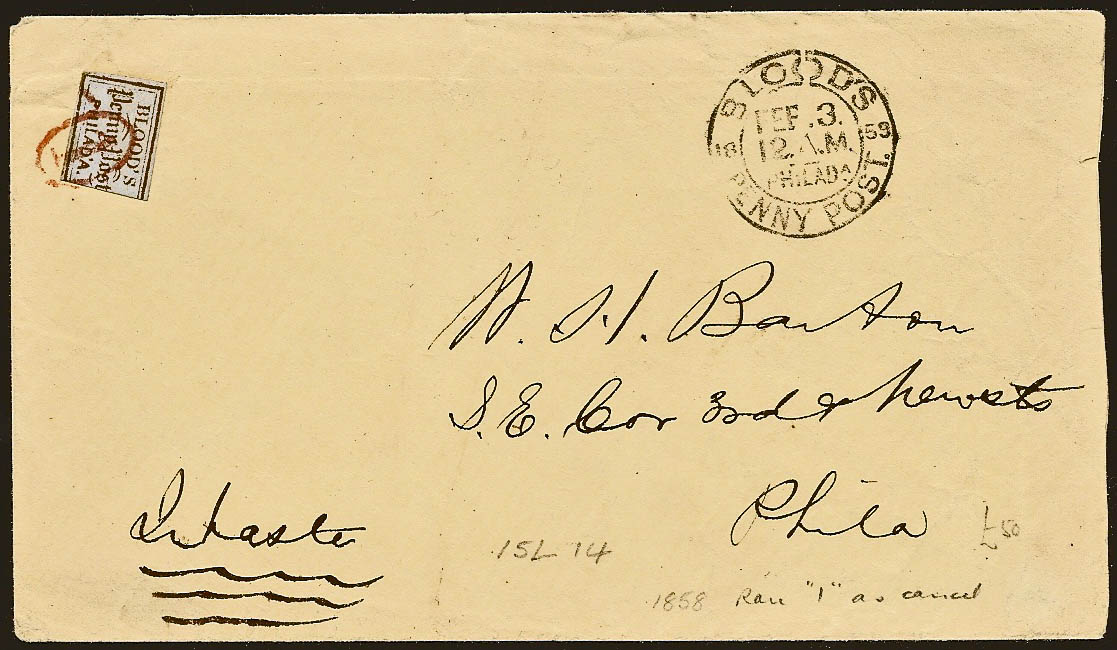 BLOOD'S
Penny Post
PHILADA.
BLOOD'S
FEB. 3.
12. A.M.
PHILADA
18 59
PENNY POST.
W. H. Barton
S. E. Cor 3rd &
Phila
In haste
15L 14
£50
1858 Rare "1" as cancel